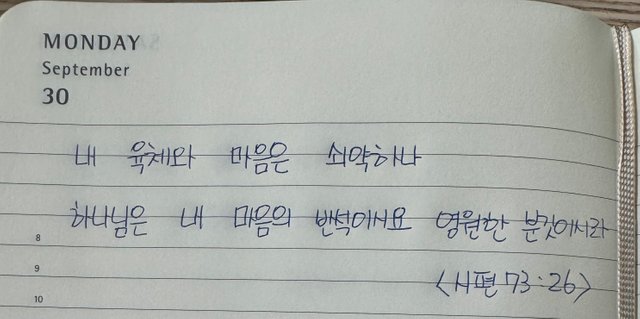 MONDAY
September
30
내 육체와 마음은 쇠약하나
하나님은 내 마음의 반석이시요 영원한 분깃이시라
8
9
<시편 73:26>
10